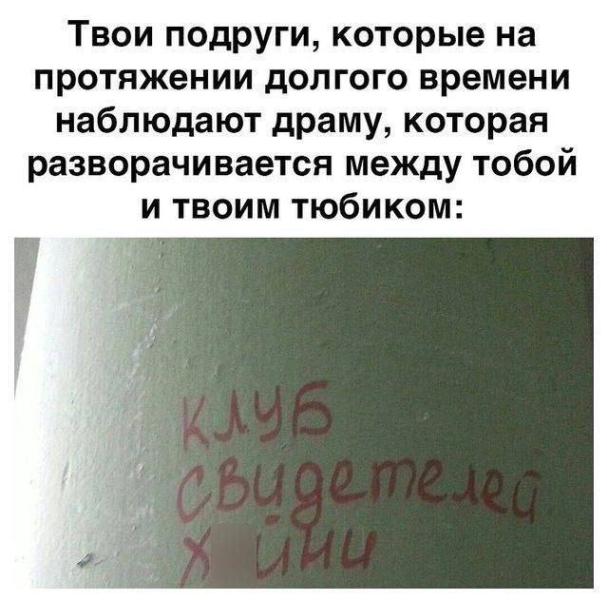 Твои подруги, которые на
протяжении долгого времени
наблюдают драму, которая
разворачивается между тобой
и твоим тюбиком:
КЛУБ
СВидетелей